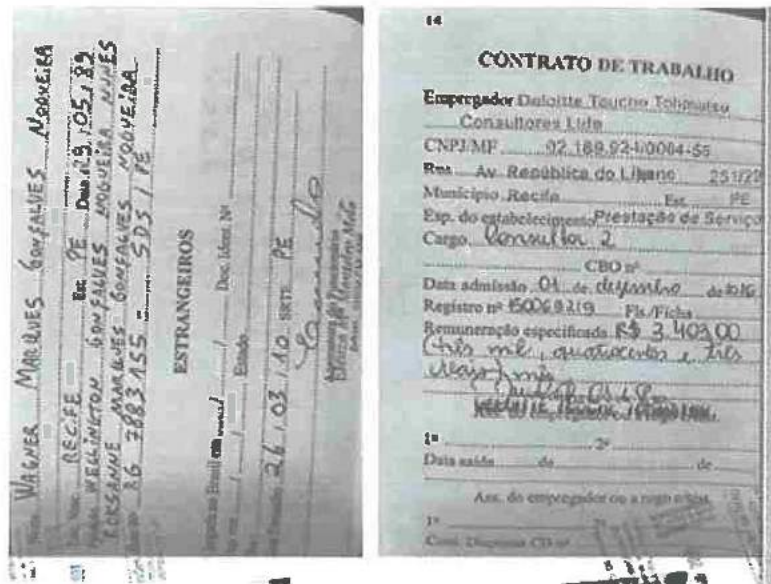 WAGNER MARQUES GONSALVES NOGUEIRA
RECIFE Est. PE Data 29/05/89
WELLINGTON GONSALVES NOGUEIRA NUNES
ROKSANNE MARQUES GONSALVES NOGUEIRA
RG 7883155 SDS / PE
ESTRANGEIROS
Brasil em / / Doc. Ident. Nº
/ / Estado
26/03/10 SRTE PE
14
CONTRATO DE TRABALHO
Empregador Deloitte Touche Tohmatsu
Consultores Ltda
CNPJ/MF 02.189.924/0004-55
Rua Av República do Líbano 251/
Município Recife Est. PE
Esp. do estabelecimento Prestação de Serviço
Cargo Consultor 2
CBO nº
Data admissão 01 de dezembro de 2016
Registro nº 150069219 Fls./Ficha
Remuneração especificada R$ 3.403,00
(três mil, quatrocentos e três
reais) mês
1º 2º
Data saída de de
Ass. do empregador ou a rogo c/test.
1º 2º
Com. Dispensa CD nº